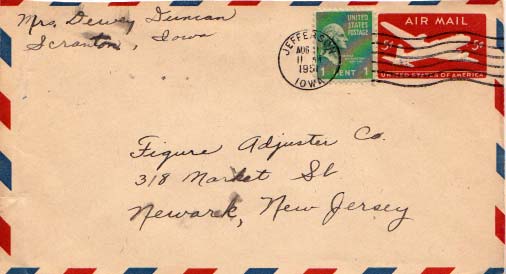 Mrs. Dewey Duncan
Scranton, Iowa
JEFFERSON
AUG
11 AM
195
IOWA
UNITED STATES
POSTAGE
1 CENT 1
AIR MAIL
5¢ 5¢
UNITED STATES OF AMERICA
Figure Adjuster Co.
318 Market St
Newark, New Jersey